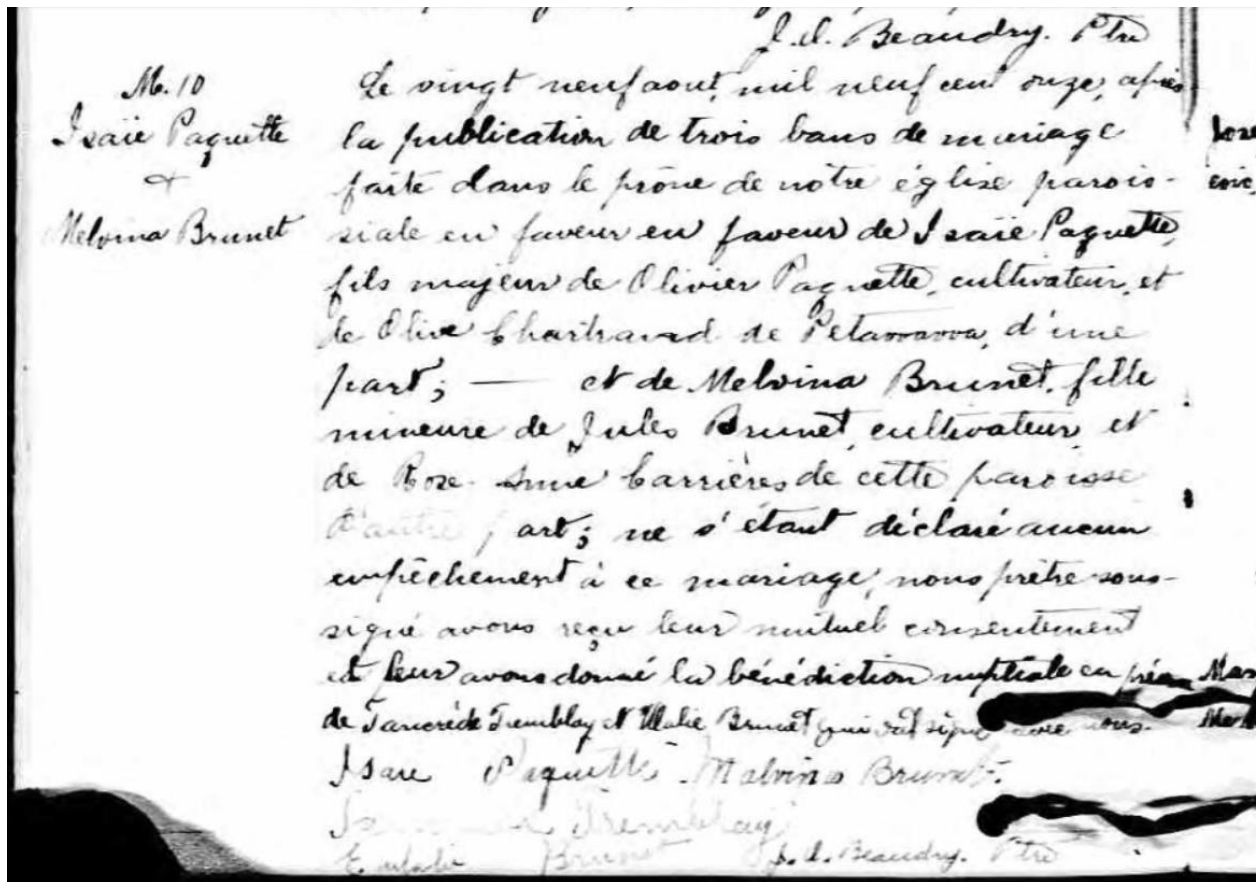 J.A. Beaudry. Ptre
M. 10
Isaïe Paquette
&
Melvina Brunet
Le vingt neuf aout, mil neuf cent onze, après
la publication de trois bans de mariage
faite dans le prône de notre église parois-
siale en faveur en faveur de Isaïe Paquette,
fils majeur de Olivier Paquette, cultivateur, et
de Olive Chartrand de Petawawa, d'une
part; — et de Melvina Brunet, fille
mineure de Jules Brunet, cultivateur, et
de Roze-Anne Carrières de cette paroisse
d'autre part; ne s'étant déclaré aucun
empêchement à ce mariage, nous prêtre sous-
signé avons reçu leur mutuel consentement
et leur avons donné la bénédiction nuptiale en
de Tancrède Tremblay et Brunet qui ont signé avec nous.
Isaie Paquette Malvina Brunet.
Tremblay
Brunet J.A. Beaudry. Ptre